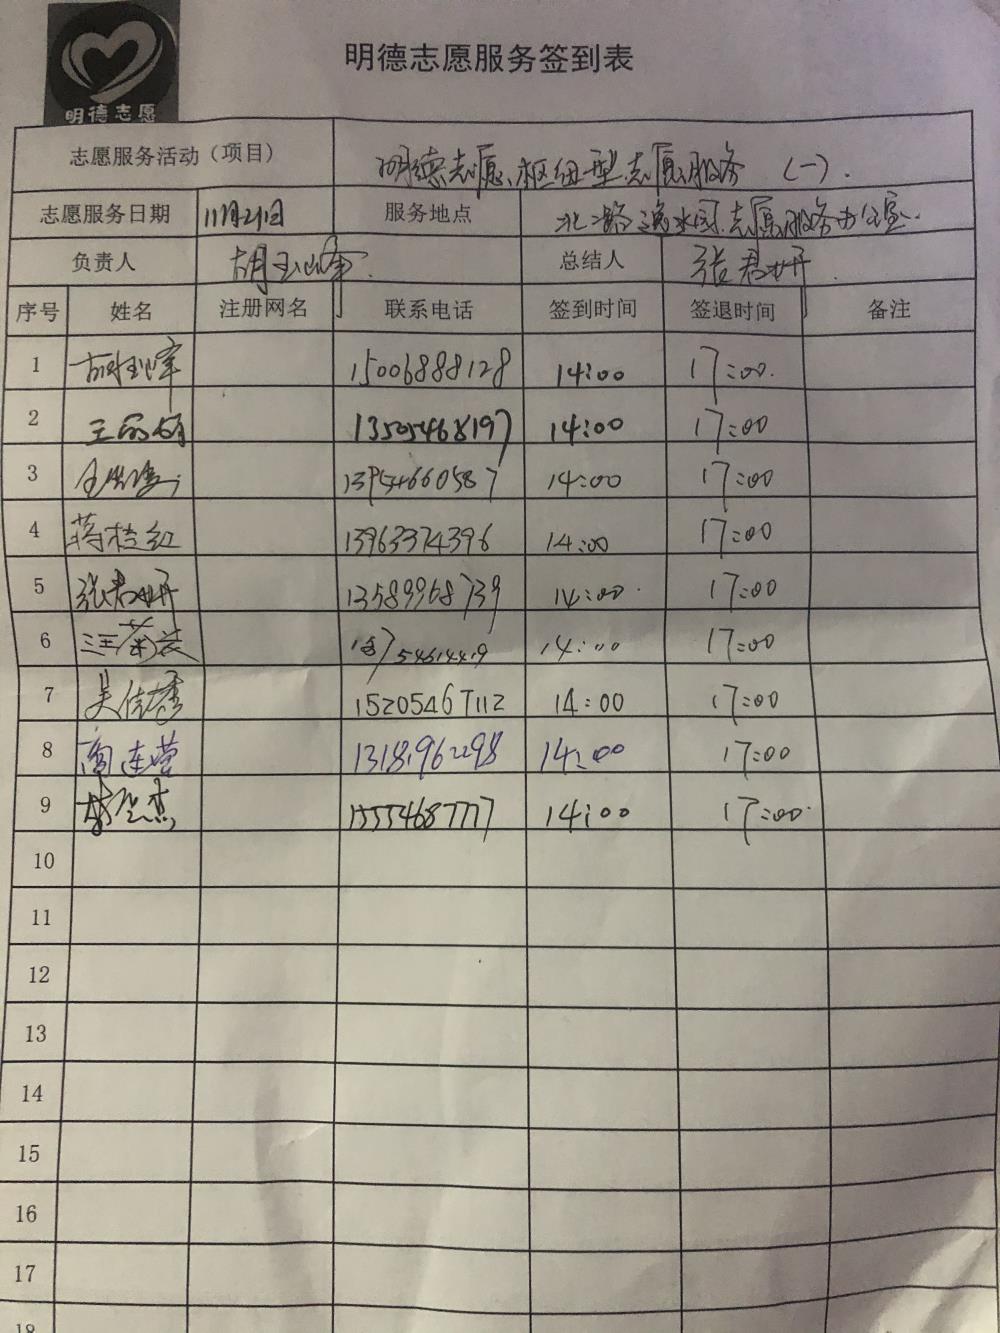 明德志愿
明德志愿服务签到表
志愿服务活动（项目） 明德志愿、枢纽型志愿服务（一）.
志愿服务日期 11月21日 服务地点 北二路 逸水园 志愿服务办公室.
负责人 胡玉峰 总结人 张君妍
序号 姓名 注册网名 联系电话 签到时间 签退时间 备注
1 胡玉峰 15006888128 14:00 17:00
2 13505468197 14:00 17:00
3 13954660587 14:00 17:00
4 蒋桂红 13963374396 14:00 17:00
5 张君妍 13589968739 14:00 17:00
6 14:00 17:00
7 吴佳秀 15205467112 14:00 17:00
8 13181962298 14:00 17:00
9 15554687777 14:00 17:00
10
11
12
13
14
15
16
17
18